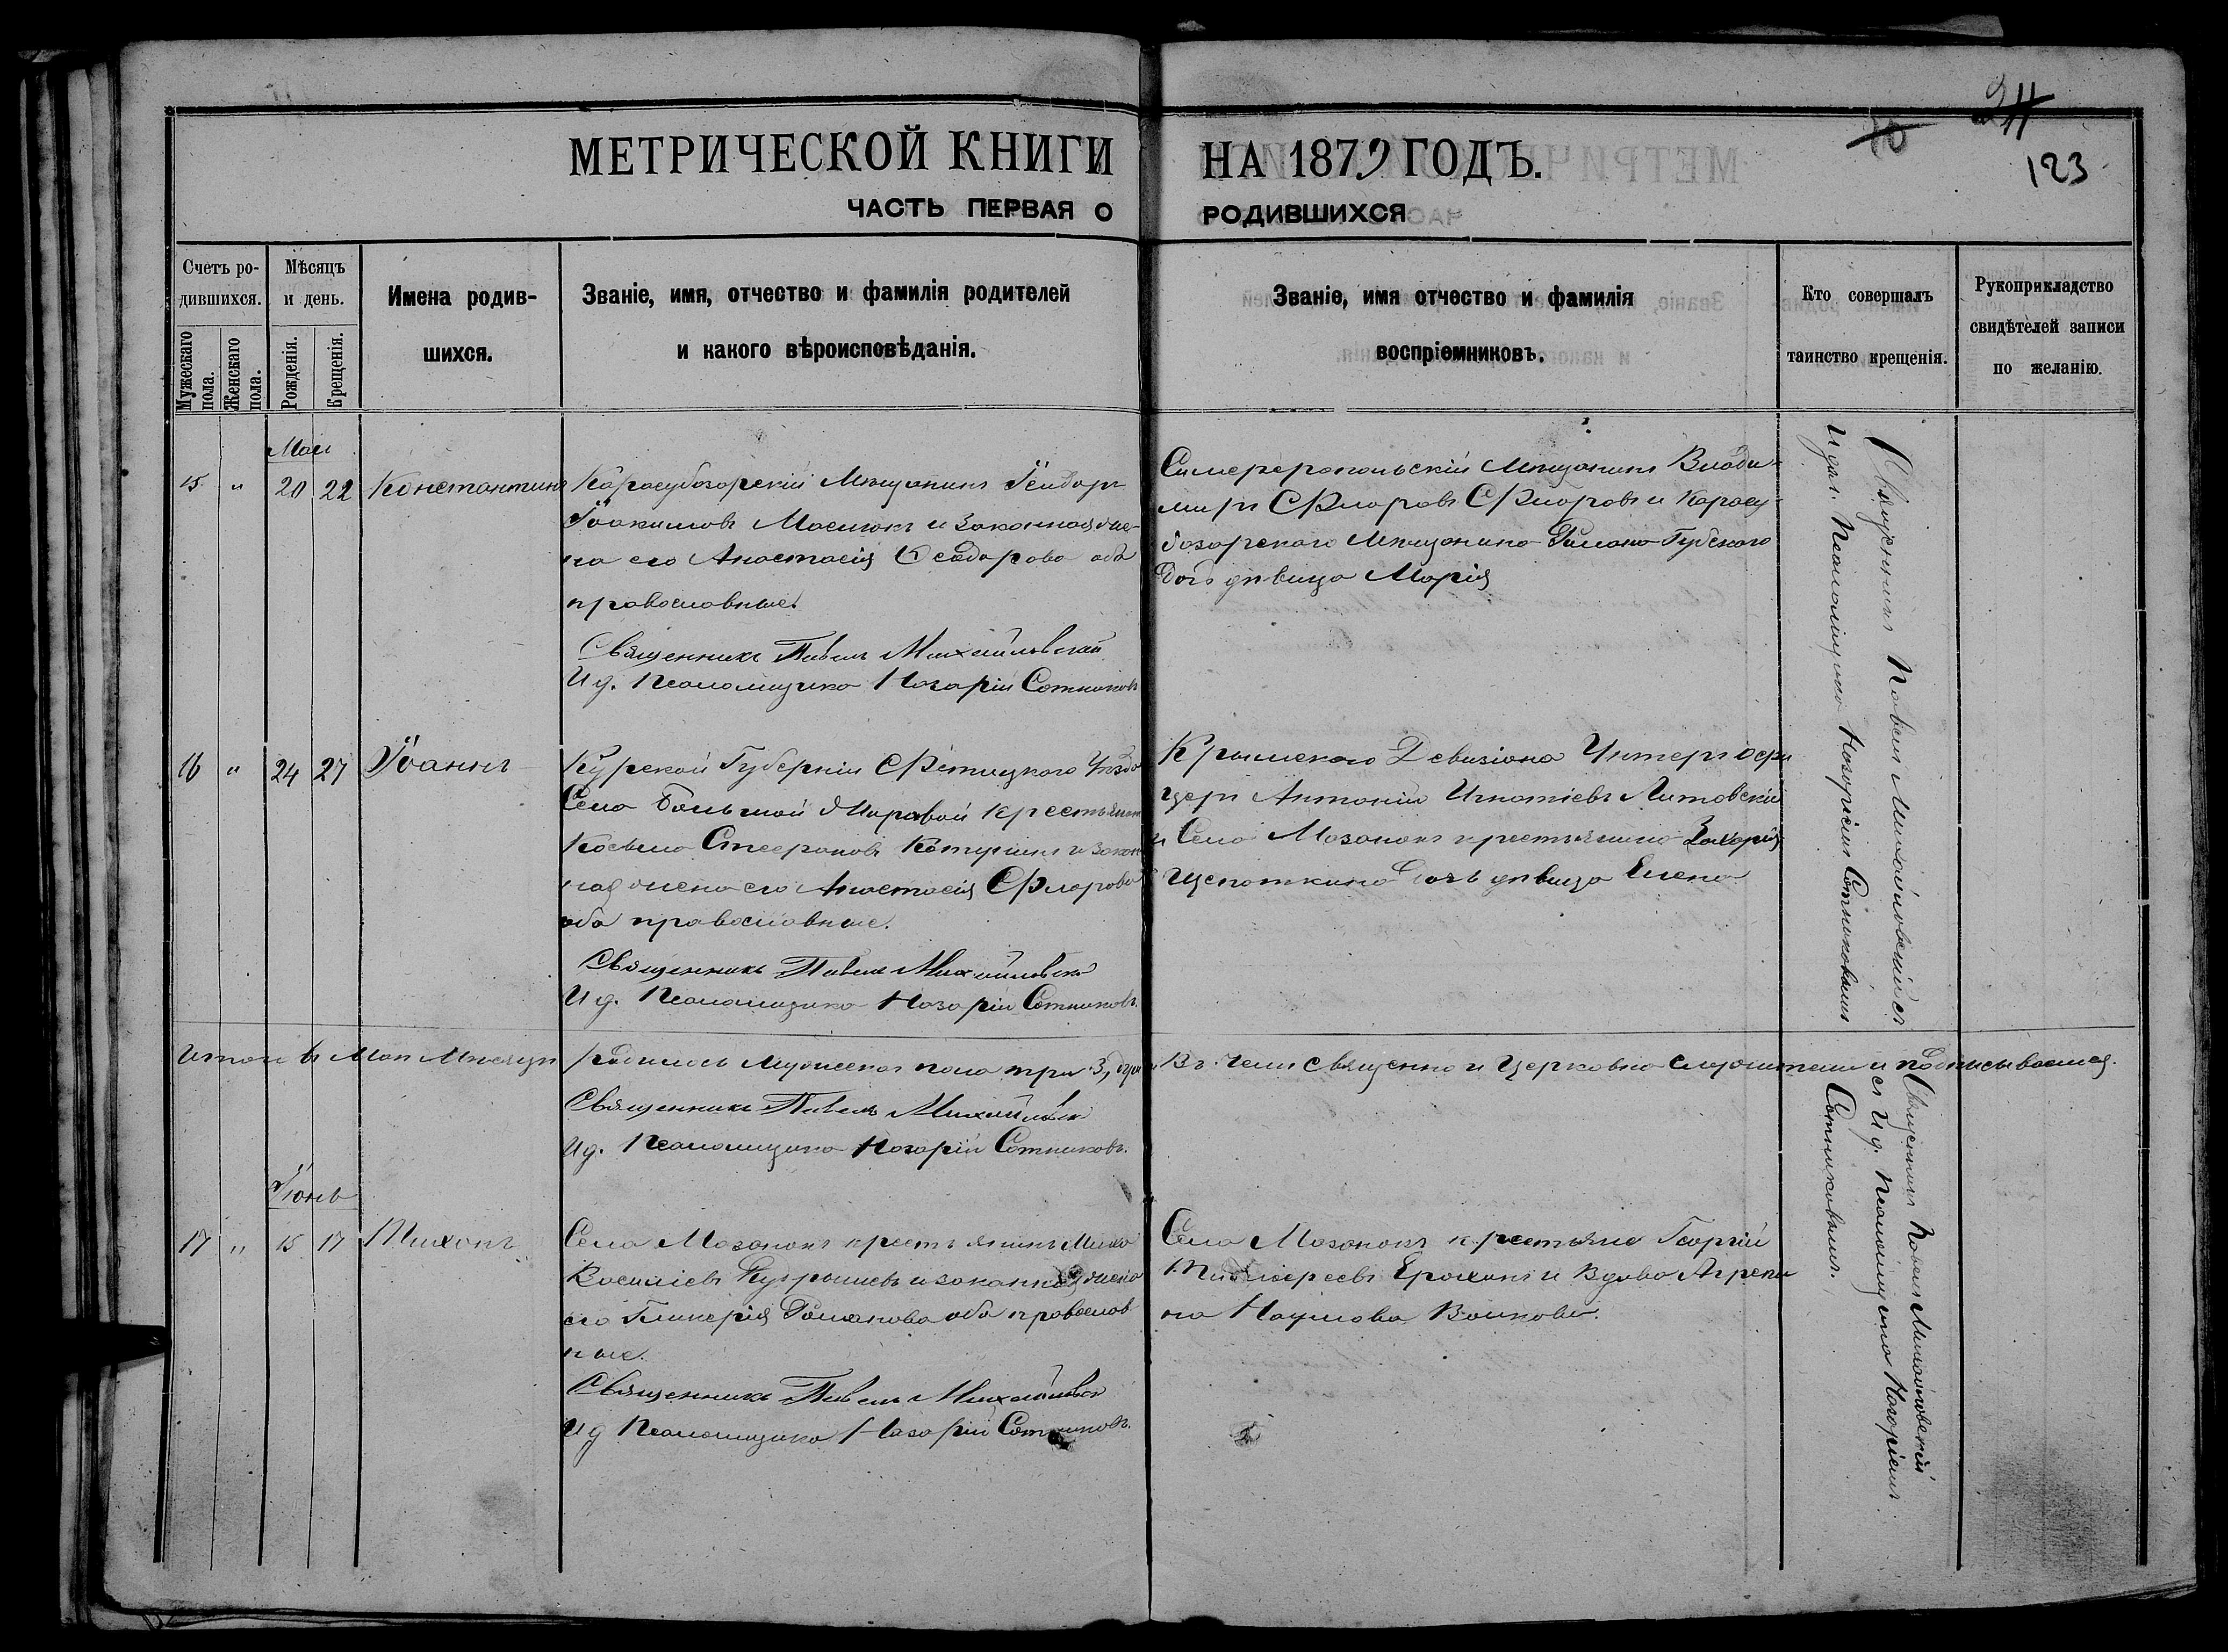 211
70
123
МЕТРИЧЕСКОЙ КНИГИ НА 1879 ГОДЪ.
ЧАСТЬ ПЕРВАЯ О РОДИВШИХСЯ
Счетъ родившихся.
Мужескаго пола.
Женскаго пола.
Мѣсяцъ и день.
Рожденія.
Крещенія.
Имена родившихся.
Званіе, имя, отчество и фамилія родителей
и какого вѣроисповѣданія.
Званіе, имя отчество и фамилія
воспріемниковъ.
Кто совершалъ
таинство крещенія.
Рукоприкладство
свидѣтелей записи
по желанію.
Май
15 " 20 22 Константинъ
Карасубазарскій Мѣщанинъ
Іоакимовъ и законная же-
на его Анастасія Ѳеодорова оба
православные.
Священникъ Павелъ Михайловскій
И д. Псаломщика Назарій Сотниковъ
Симферопольскій Мѣщанинъ Влади-
миръ Флоровъ Флоровъ и Карасу-
базарскаго Мѣщанина Романа Губскаго
дочь дѣвица Марія
Священникъ Павелъ Михайловскій съ
И дол. Псаломщика Назаріемъ Сотниковымъ
16 " 24 27 Іоаннъ
Курской Губерніи Уѣзда
Села Большой крестьянинъ
Косьма Стефановъ и закон
ная жена его Анастасія Флорова
оба православные.
Священникъ Павелъ Михайловскій
И д. Псаломщика Назарій Сотниковъ.
Крымскаго Девизіона Унтеръ Офи
церъ Антоній Игнатіевъ Литовскій
и Села Мазанокъ крестьянина Захарія
Щепоткина дочь дѣвица Елена
Итого въ Маѣ Мѣсяцѣ родилось мужеска пола три 3, души Въ чемъ священно и церковно служители и подписываемся.
Священникъ Павелъ Михайловскій
И д. Псаломщика Назарій Сотниковъ.
Іюнь
17 " 15 17 Тихонъ
Села Мазанокъ крестьянинъ
Василіевъ и законная жена
его Гликерія Романова оба православ
ные.
Священникъ Павелъ Михайловскій
И д Псаломщика Назарій Сотниковъ.
Села Мазанокъ крестьяне Георгій
Ерохинъ и Вдова Агрепи
на Наумова Волкова.
Священникъ Павелъ Михайловскій
съ И д. Псаломщика Назаріемъ
Сотниковымъ.